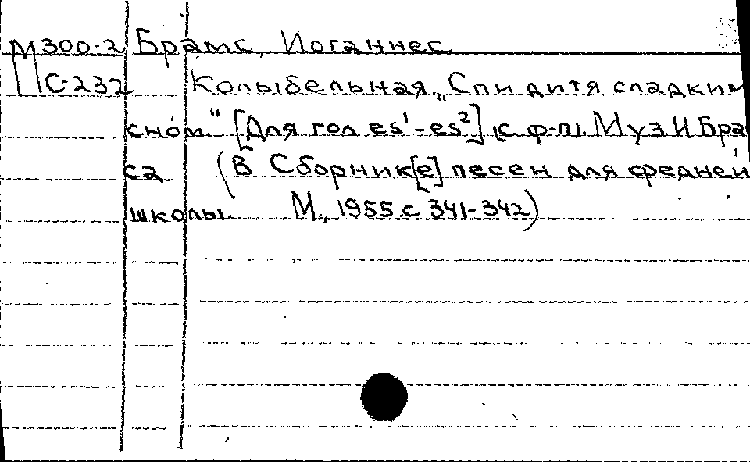 М300-2 Брамс, Иоганнес.
С-232 Колыбельная „Спи дитя сладким
сном" [Для гол es¹-es²] с ф-п. Муз И Бра
са (В Сборник[е] песен для средней
школы. М., 1955 с 341-342)